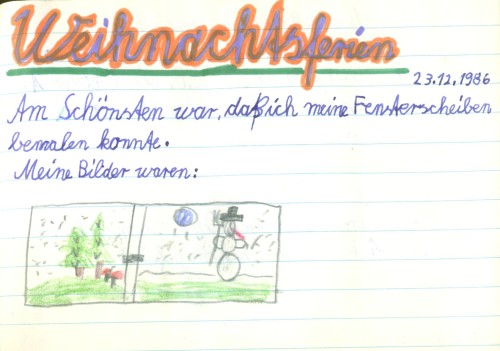 Weihnachtsferien
23.12.1986
Am Schönsten war, daß ich meine Fensterscheiben
bemalen konnte.
Meine Bilder waren: